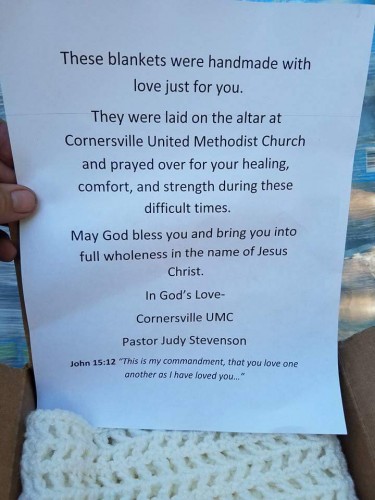 These blankets were handmade with
love just for you.
They were laid on the altar at
Cornersville United Methodist Church
and prayed over for your healing,
comfort, and strength during these
difficult times.
May God bless you and bring you into
full wholeness in the name of Jesus
Christ.
In God's Love-
Cornersville UMC
Pastor Judy Stevenson
John 15:12 "This is my commandment, that you love one
another as I have loved you..."